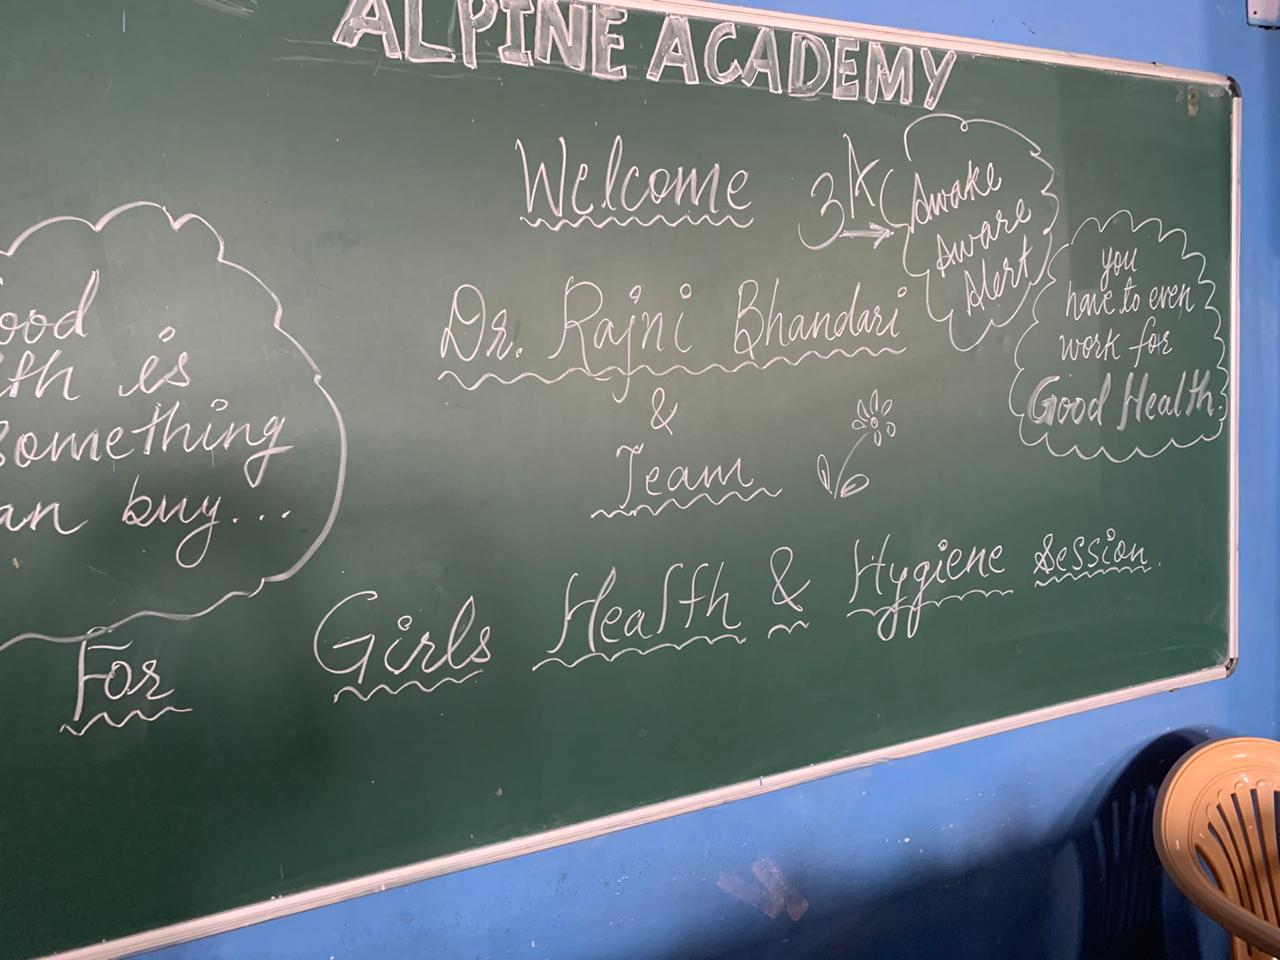 ALPINE ACADEMY
Welcome
3
Awake
Aware
Alert
Dr. Rajni Bhandari
&
Team
you
have to even
work for
Good Health.
ood
lth is
something
an buy...
For Girls Health & Hygiene Session.